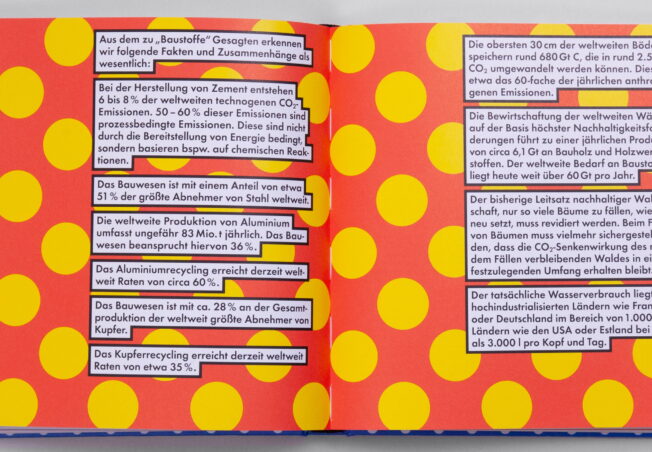 Aus dem zu „Baustoffe“ Gesagten erkennen
wir folgende Fakten und Zusammenhänge als
wesentlich:
Bei der Herstellung von Zement entstehen
6 bis 8 % der weltweiten technogenen CO₂-
Emissionen. 50 – 60 % dieser Emissionen sind
prozessbedingte Emissionen. Diese sind nicht
durch die Bereitstellung von Energie bedingt,
sondern basieren bspw. auf chemischen Reak-
tionen.
Das Bauwesen ist mit einem Anteil von etwa
51 % der größte Abnehmer von Stahl weltweit.
Die weltweite Produktion von Aluminium
umfasst ungefähr 83 Mio. t jährlich. Das Bau-
wesen beansprucht hiervon 36 %.
Das Aluminiumrecycling erreicht derzeit welt-
weit Raten von circa 60 %.
Das Bauwesen ist mit ca. 28 % an der Gesamt-
produktion der weltweit größte Abnehmer von
Kupfer.
Das Kupferrecycling erreicht derzeit weltweit
Raten von etwa 35 %.
Die obersten 30 cm der weltweiten Böde
speichern rund 680 Gt C, die in rund 2.5
CO₂ umgewandelt werden können. Dies
etwa das 60-fache der jährlichen anthro
genen Emissionen.
Die Bewirtschaftung der weltweiten Wä
auf der Basis höchster Nachhaltigkeitsfo
derungen führt zu einer jährlichen Produ
von circa 6,1 Gt an Bauholz und Holzwer
stoffen. Der weltweite Bedarf an Baustо
liegt heute weit über 60 Gt pro Jahr.
Der bisherige Leitsatz nachhaltiger Wal
schaft, nur so viele Bäume zu fällen, wie
neu setzt, muss revidiert werden. Beim F
von Bäumen muss vielmehr sichergestel
den, dass die CO₂-Senkenwirkung des n
dem Fällen verbleibenden Waldes in ei
festzulegenden Umfang erhalten bleibt.
Der tatsächliche Wasserverbrauch liegt
hochindustrialisierten Ländern wie Fran
oder Deutschland im Bereich von 1.000
Ländern wie den USA oder Estland bei
als 3.000 l pro Kopf und Tag.